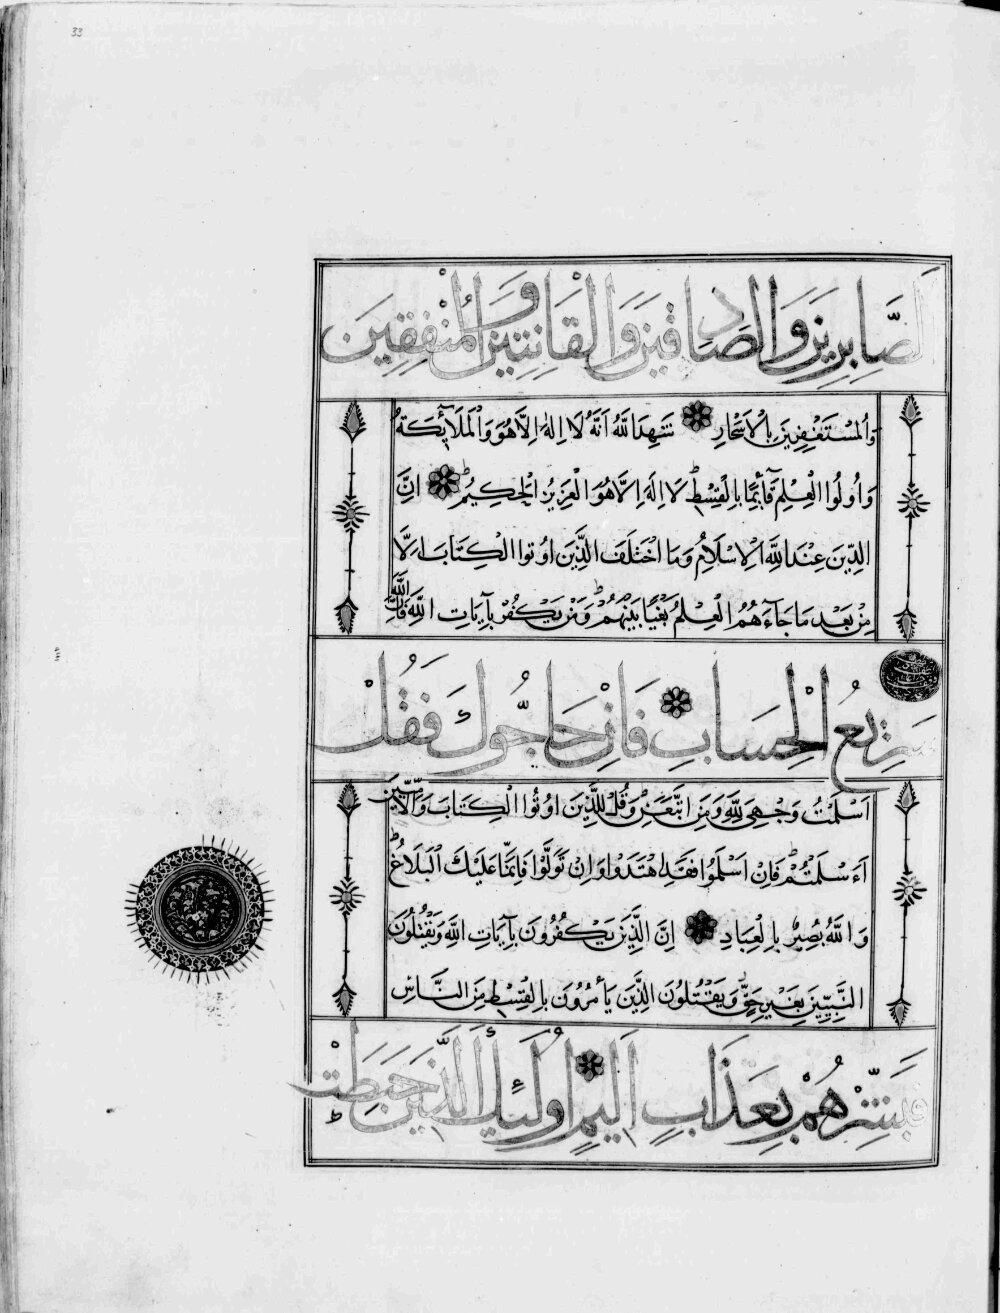 33
الصَّابِرِينَ وَالصَّادِقِينَ وَالْقَانِتِينَ وَالْمُنْفِقِينَ
وَالْمُسْتَغْفِرِينَ بِالْاَسْحَارِ شَهِدَ اللهُ اَنَّهُ لَا اِلٰهَ اِلَّا هُوَ وَالْمَلَائِكَةُ
وَاُولُوا الْعِلْمِ قَآئِمًا بِالْقِسْطِ لَا اِلٰهَ اِلَّا هُوَ الْعَزِيزُ الْحَكِيمُ اِنَّ
الدِّينَ عِنْدَ اللهِ الْاِسْلَامُ وَمَا اخْتَلَفَ الَّذِينَ اُوتُوا الْكِتَابَ اِلَّا
مِنْ بَعْدِ مَا جَآءَهُمُ الْعِلْمُ بَغْيًا بَيْنَهُمْ وَمَنْ يَكْفُرْ بِآيَاتِ اللهِ فَاِنَّ اللهَ
سَرِيعُ الْحِسَابِ فَاِنْ حَاجُّوكَ فَقُلْ
اَسْلَمْتُ وَجْهِيَ لِلّٰهِ وَمَنِ اتَّبَعَنِ وَقُلْ لِلَّذِينَ اُوتُوا الْكِتَابَ وَالْاُمِّيِّينَ
ءَاَسْلَمْتُمْ فَاِنْ اَسْلَمُوا فَقَدِ اهْتَدَوْا وَاِنْ تَوَلَّوْا فَاِنَّمَا عَلَيْكَ الْبَلَاغُ
وَاللهُ بَصِيرٌ بِالْعِبَادِ اِنَّ الَّذِينَ يَكْفُرُونَ بِآيَاتِ اللهِ وَيَقْتُلُونَ
النَّبِيِّينَ بِغَيْرِ حَقٍّ وَيَقْتُلُونَ الَّذِينَ يَأْمُرُونَ بِالْقِسْطِ مِنَ النَّاسِ
فَبَشِّرْهُمْ بِعَذَابٍ اَلِيمٍ اُولٰئِكَ الَّذِينَ حَبِطَتْ